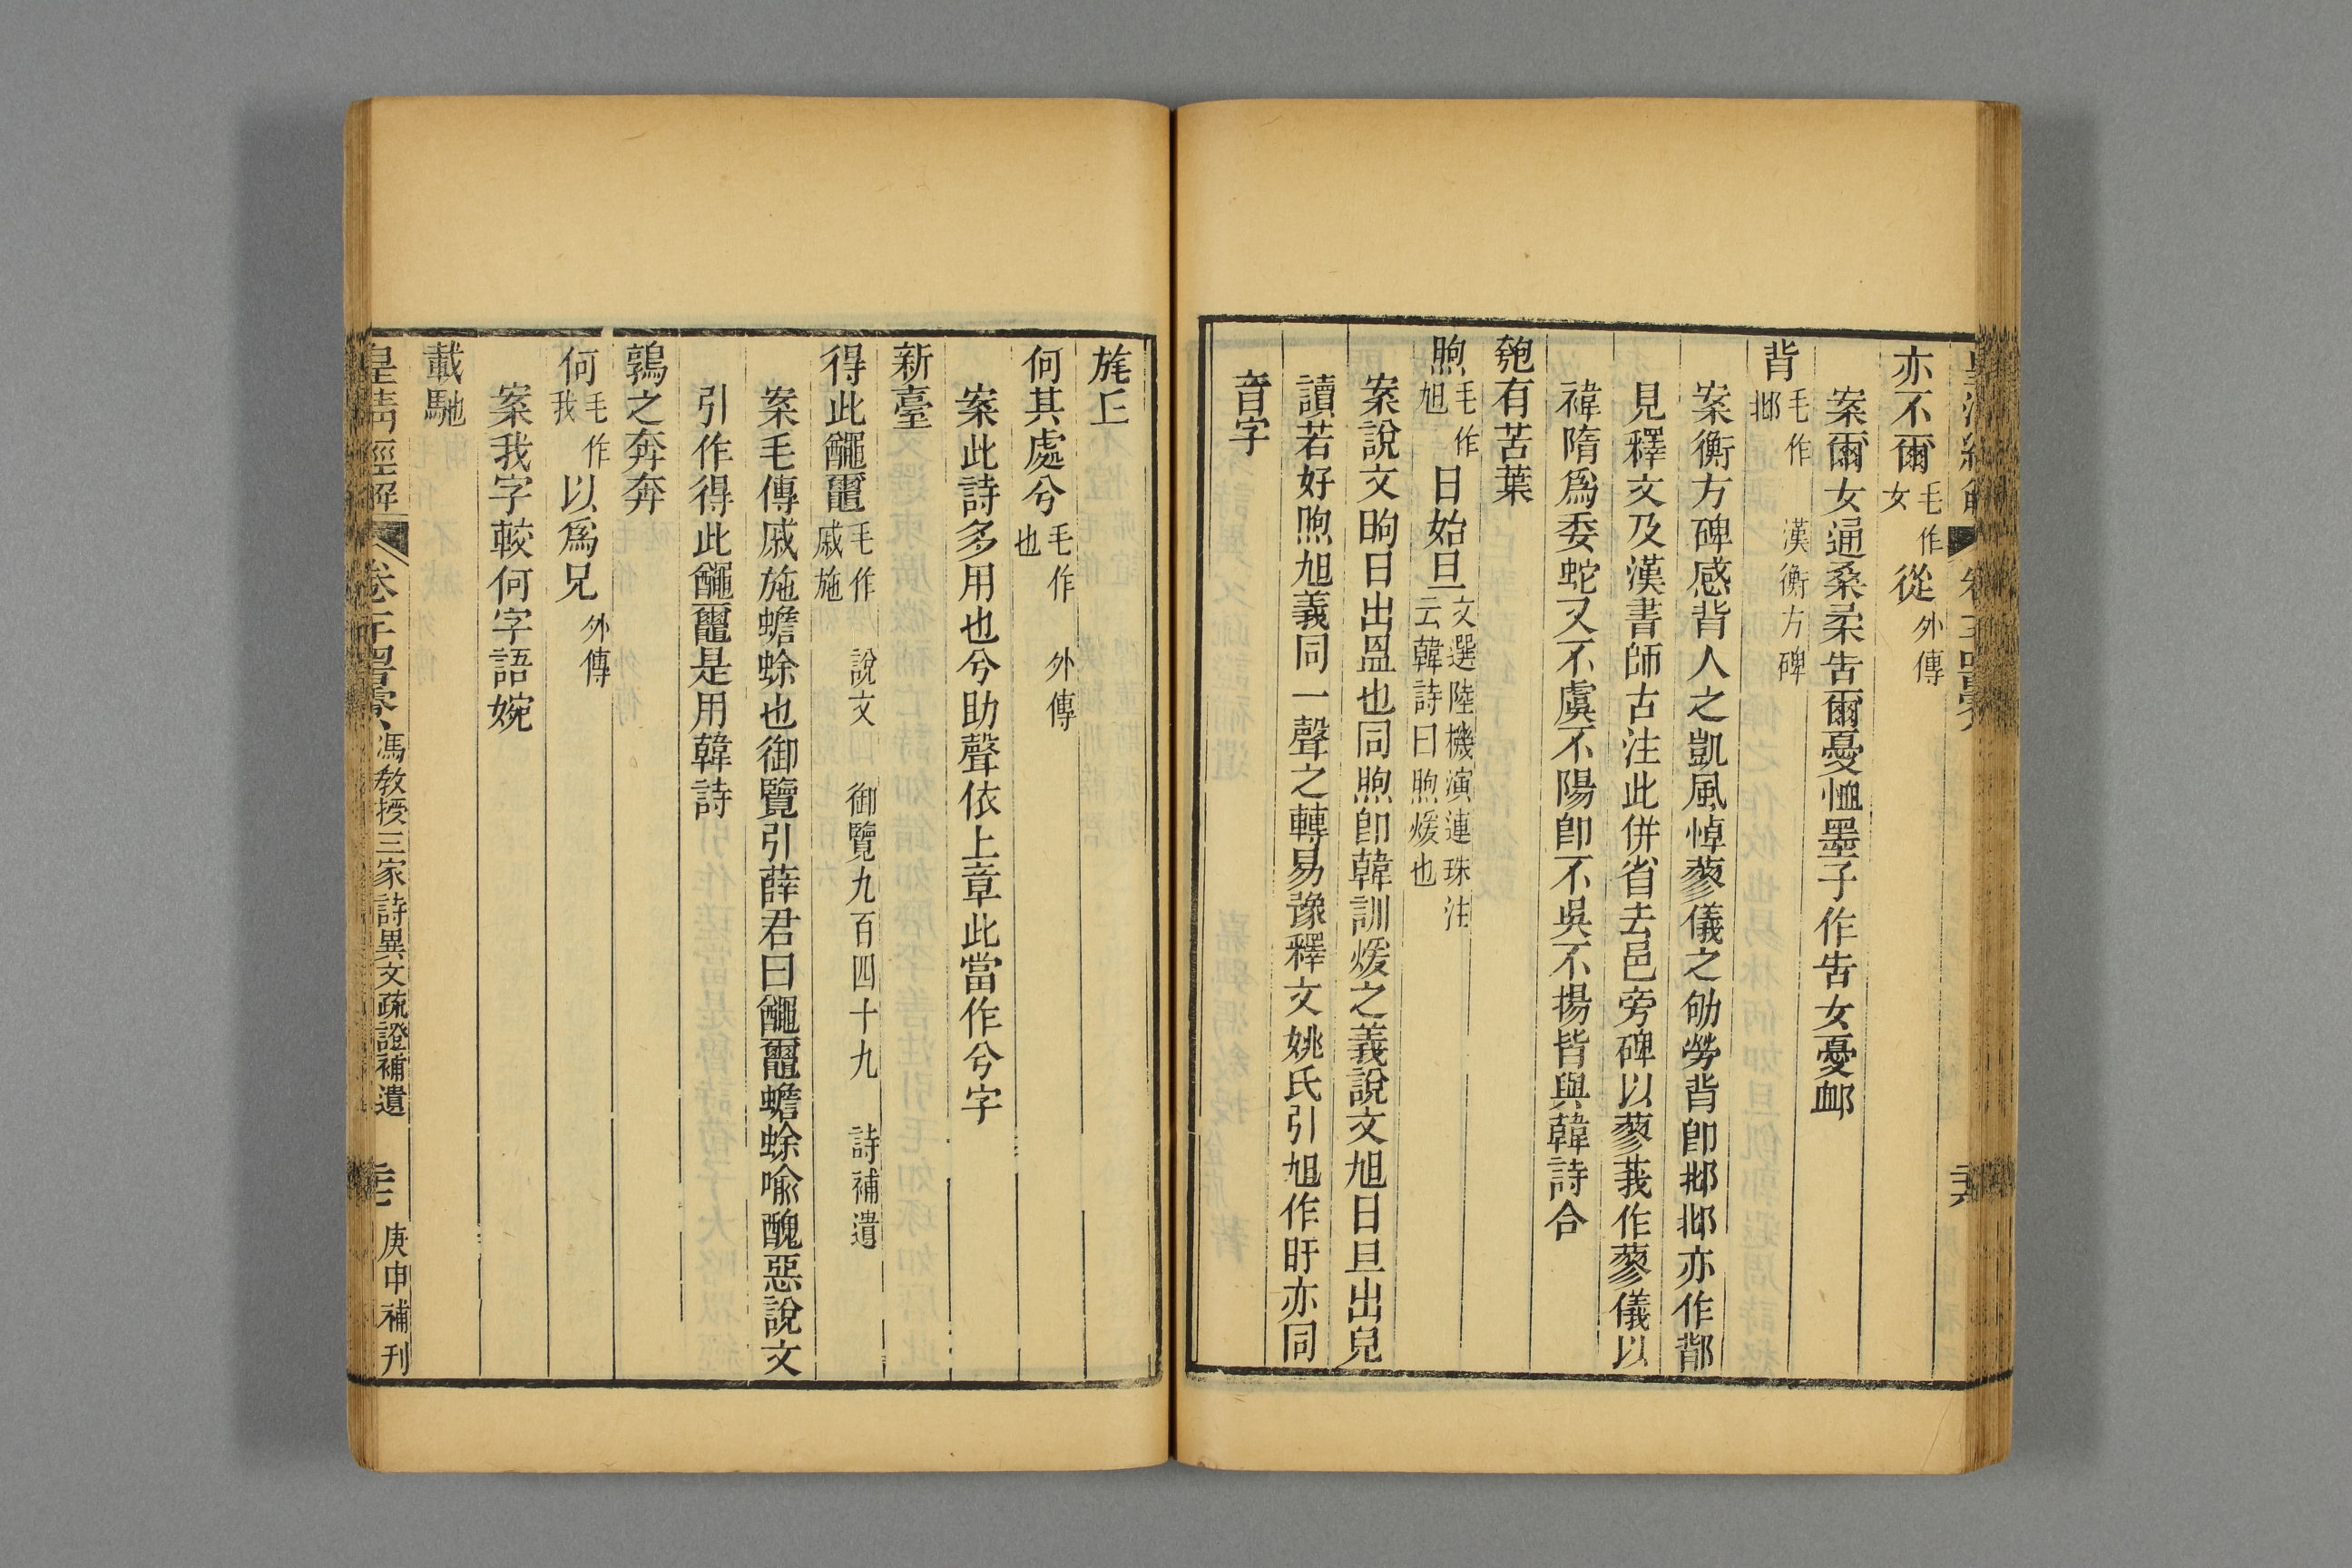 亦不爾毛作女從外傳
案爾女通桑柔告爾憂恤墨子作告女憂卹
背毛作邶漢衡方碑
案衡方碑感背人之凱風悼蓼儀之劬勞背卽邶邶亦作鄁
見釋文及漢書師古注此併省去邑旁碑以蓼莪作蓼儀以
褘隋爲委蛇又不虞不陽卽不吳不揚皆與韓詩合
匏有苦葉
煦毛作旭日始旦文選陸機演連珠注云韓詩曰煦煖也
案說文昫日出𥁕也同煦卽韓訓煖之義說文旭日旦出皃
讀若好煦旭義同一聲之轉易豫釋文姚氏引旭作旴亦同
音字
旄丘
何其處兮毛作也外傳
案此詩多用也兮助聲依上章此當作兮字
新臺
得此𪓰𪓿毛作戚施說文御覽九百四十九詩補遺
案毛傳戚施蟾蜍也御覽引薛君曰𪓰𪓿蟾蜍喻醜惡說文
引作得此𪓰𪓿是用韓詩
鶉之奔奔
何毛作我以爲兄外傳
案我字較何字語婉
載馳
皇淸經解 馮敎授三家詩異文疏證補遺 庚申補刊